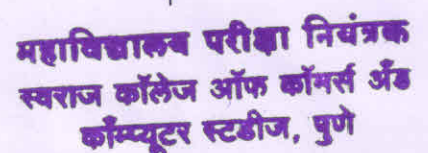 महाविद्यालय परीक्षा नियंत्रक
स्वराज कॉलेज ऑफ कॉमर्स अँड
कॉम्प्युटर स्टडीज, पुणे